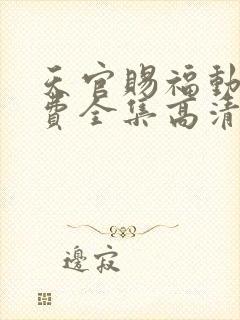 天官賜福動
費全集高清
邊寂